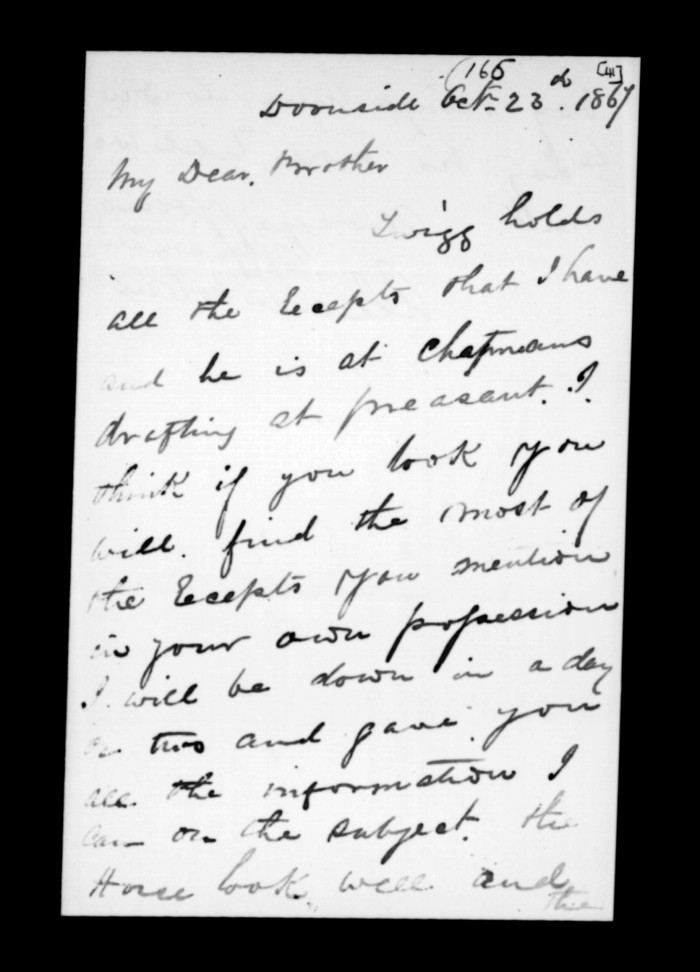 (165 [41]
Doonside Oct 23d. 1867
My Dear. Brother
Twigg holds
all the Recepts that I have
and he is at Chapmans
drafting at preasant. I
think if you look you
will. find the most of
the Recepts you mention
in your own possession
I will be down in a day
or two and gave you
all the information I
Can on the subject. the
Horse look well and
the